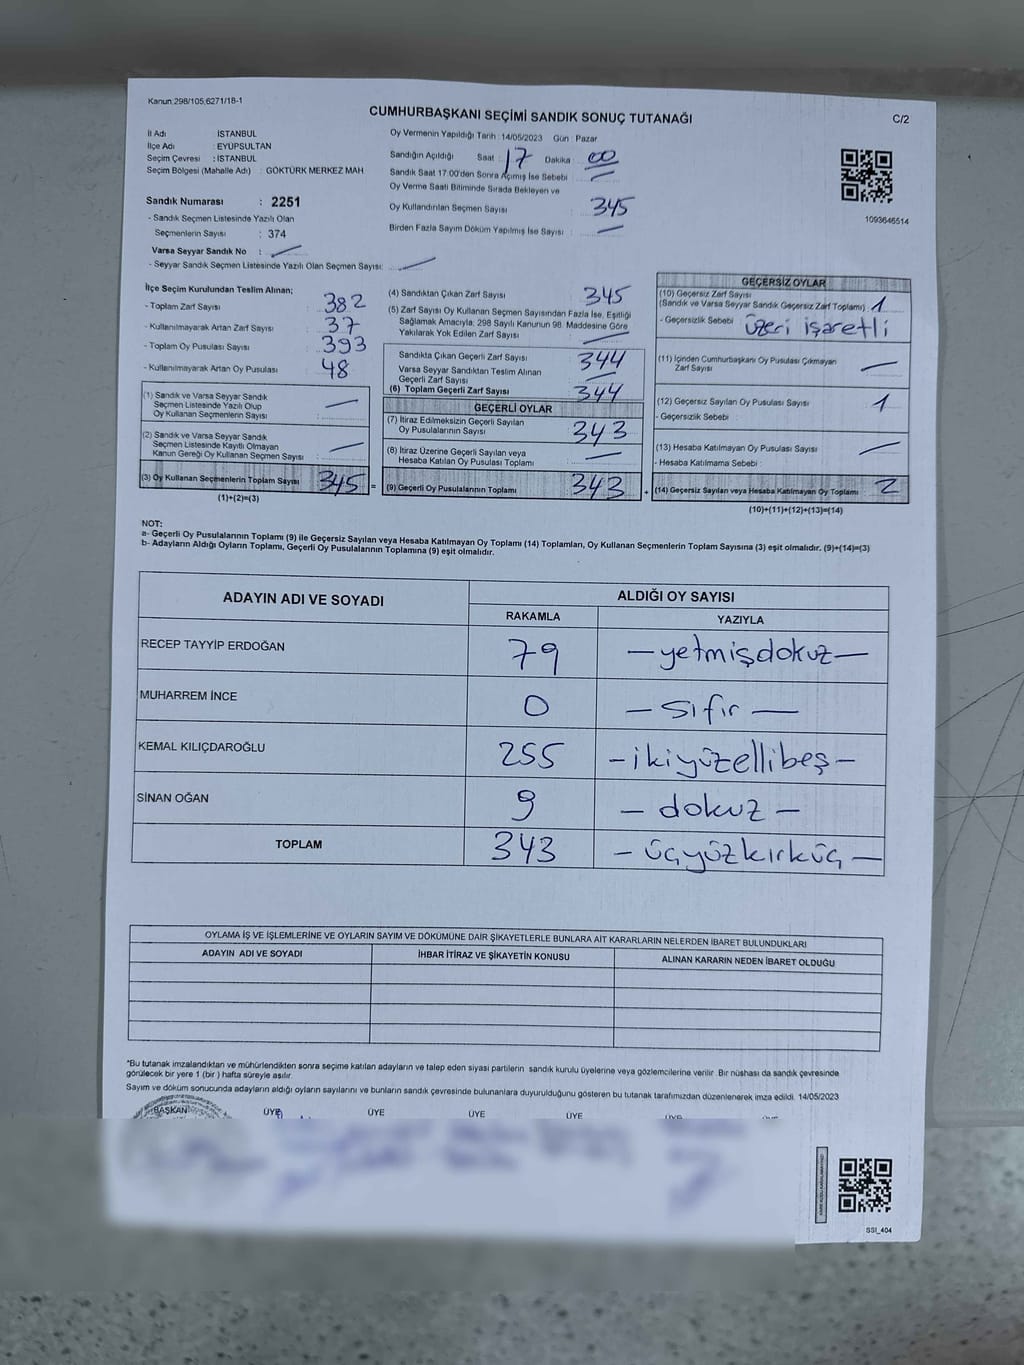 Kanun.298/105,6271/18-1
CUMHURBAŞKANI SEÇİMİ SANDIK SONUÇ TUTANAĞI
C/2
İl Adı : İSTANBUL
İlçe Adı : EYÜPSULTAN
Seçim Çevresi : İSTANBUL
Seçim Bölgesi (Mahalle Adı) : GÖKTÜRK MERKEZ MAH
Sandık Numarası : 2251
- Sandık Seçmen Listesinde Yazılı Olan
Seçmenlerin Sayısı : 374
Varsa Seyyar Sandık No :
- Seyyar Sandık Seçmen Listesinde Yazılı Olan Seçmen Sayısı:
Oy Vermenin Yapıldığı Tarih : 14/05/2023 Gün : Pazar
Sandığın Açıldığı Saat : 17 Dakika : 00
Sandık Saat 17:00'den Sonra Açılmış İse Sebebi :
Oy Verme Saati Bitiminde Sırada Bekleyen ve
Oy Kullandırılan Seçmen Sayısı : 345
Birden Fazla Sayım Döküm Yapılmış İse Sayısı :
1093646514
İlçe Seçim Kurulundan Teslim Alınan;
- Toplam Zarf Sayısı : 382
- Kullanılmayarak Artan Zarf Sayısı : 37
- Toplam Oy Pusulası Sayısı : 393
- Kullanılmayarak Artan Oy Pusulası : 48
(1) Sandık ve Varsa Seyyar Sandık
Seçmen Listesinde Yazılı Olup
Oy Kullanan Seçmenlerin Sayısı :
(2) Sandık ve Varsa Seyyar Sandık
Seçmen Listesinde Kayıtlı Olmayan
Kanun Gereği Oy Kullanan Seçmen Sayısı :
(3) Oy Kullanan Seçmenlerin Toplam Sayısı : 345 =
(1)+(2)=(3)
(4) Sandıktan Çıkan Zarf Sayısı : 345
(5) Zarf Sayısı Oy Kullanan Seçmen Sayısından Fazla İse, Eşitliği
Sağlamak Amacıyla; 298 Sayılı Kanunun 98. Maddesine Göre
Yakılarak Yok Edilen Zarf Sayısı :
Sandıkta Çıkan Geçerli Zarf Sayısı : 344
Varsa Seyyar Sandıktan Teslim Alınan
Geçerli Zarf Sayısı :
(6) Toplam Geçerli Zarf Sayısı : 344
GEÇERLİ OYLAR
(7) İtiraz Edilmeksizin Geçerli Sayılan
Oy Pusulalarının Sayısı : 343
(8) İtiraz Üzerine Geçerli Sayılan veya
Hesaba Katılan Oy Pusulası Toplamı :
(9) Geçerli Oy Pusulalarının Toplamı : 343 +
GEÇERSİZ OYLAR
(10) Geçersiz Zarf Sayısı
(Sandık ve Varsa Seyyar Sandık Geçersiz Zarf Toplamı) : 1
- Geçersizlik Sebebi : üzeri işaretli
(11) İçinden Cumhurbaşkanı Oy Pusulası Çıkmayan
Zarf Sayısı :
(12) Geçersiz Sayılan Oy Pusulası Sayısı : 1
- Geçersizlik Sebebi :
(13) Hesaba Katılmayan Oy Pusulası Sayısı :
- Hesaba Katılmama Sebebi :
(14) Geçersiz Sayılan veya Hesaba Katılmayan Oy Toplamı : 2
(10)+(11)+(12)+(13)=(14)
NOT:
a- Geçerli Oy Pusulalarının Toplamı (9) ile Geçersiz Sayılan veya Hesaba Katılmayan Oy Toplamı (14) Toplamları, Oy Kullanan Seçmenlerin Toplam Sayısına (3) eşit olmalıdır. (9)+(14)=(3)
b- Adayların Aldığı Oyların Toplamı, Geçerli Oy Pusulalarının Toplamına (9) eşit olmalıdır.
ADAYIN ADI VE SOYADI ALDIĞI OY SAYISI
RAKAMLA YAZIYLA
RECEP TAYYİP ERDOĞAN 79 — yetmişdokuz —
MUHARREM İNCE 0 — sıfır —
KEMAL KILIÇDAROĞLU 255 - ikiyüzellibeş -
SİNAN OĞAN 9 - dokuz -
TOPLAM 343 - üçyüzkırküç -
OYLAMA İŞ VE İŞLEMLERİNE VE OYLARIN SAYIM VE DÖKÜMÜNE DAİR ŞİKAYETLERLE BUNLARA AİT KARARLARIN NELERDEN İBARET BULUNDUKLARI
ADAYIN ADI VE SOYADI İHBAR İTİRAZ VE ŞİKAYETİN KONUSU ALINAN KARARIN NEDEN İBARET OLDUĞU
*Bu tutanak imzalandıktan ve mühürlendikten sonra seçime katılan adayların ve talep eden siyasi partilerin sandık kurulu üyelerine veya gözlemcilerine verilir. Bir nüshası da sandık çevresinde
görülecek bir yere 1 (bir ) hafta süreyle asılır.
Sayım ve döküm sonucunda adayların aldığı oyların sayılarını ve bunların sandık çevresinde bulunanlara duyurulduğunu gösteren bu tutanak tarafımızdan düzenlenerek imza edildi. 14/05/2023
BAŞKAN ÜYE ÜYE ÜYE ÜYE
SSI_404